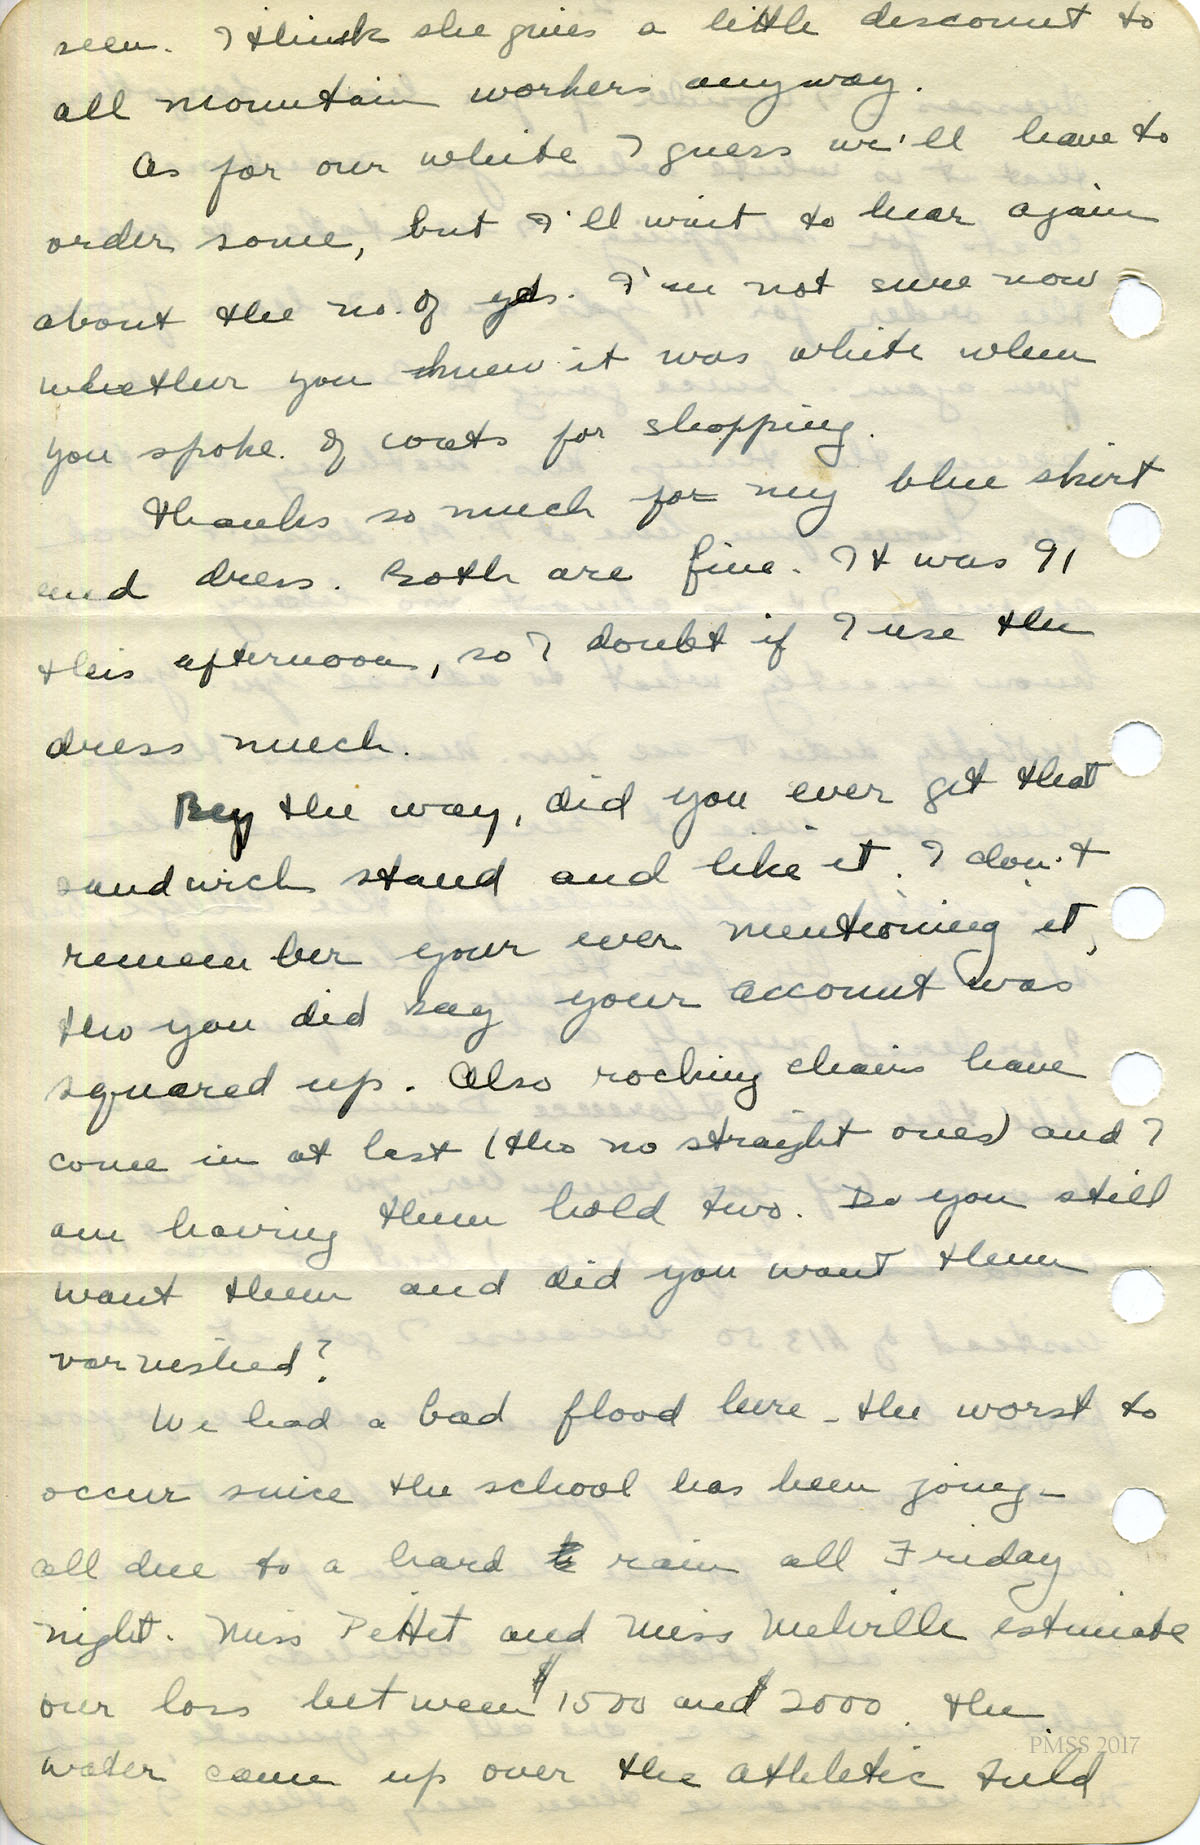 seen. I think she gives a little discount to
all mountain workers anyway.
As for our white I guess we'll have to
order some, but I'll wait to hear again
about the no. of yds. I'm not sure now
whether you knew it was white when
you spoke. of coats for shopping.
Thanks so much for my blue skirt
and dress. Both are fine. It was 91
this afternoon, so I doubt if I use the
dress much.
By the way, did you ever get that
sandwich stand and like it. I don't
remember your ever mentioning it,
tho you did say your account was
squared up. Also rocking chairs have
come in at last (tho no straight ones) and I
am having them hold two. Do you still
want them and did you want them
varnished?
We had a bad flood here - the worst to
occur since the school has been going -
all due to a hard rain all Friday
night. Miss Pettet and Miss Melville estimate
our loss between $1500 and $2000. The
water came up over the athletic field
PMSS 2017